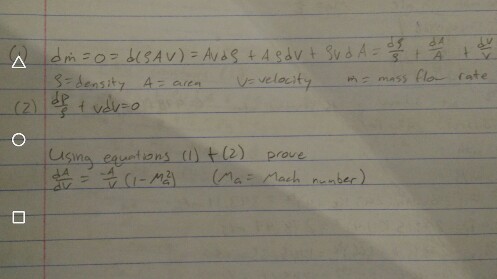 (1) dṁ = 0 = d(ρAV) = AVdρ + AρdV + ρVdA = dρ/ρ + dA/A + dV/V
ρ=density A = area V=velocity ṁ = mass flow rate
(2) dP/ρ + VdV=0
Using equations (1) + (2) prove
dA/dV = -A/V (1-Ma²) (Ma = Mach number)